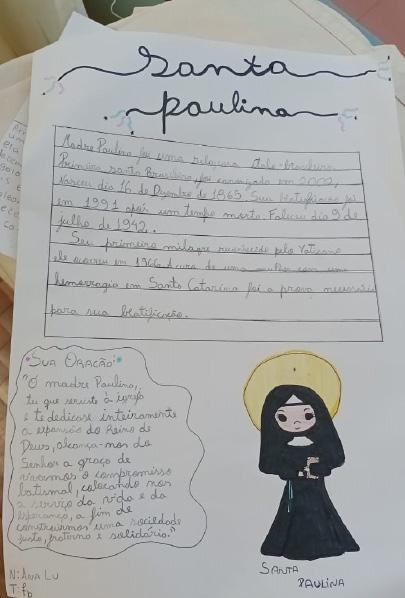 Santa
Paulina
Madre Paulina foi uma religiosa ítalo-brasileira.
Primeira santa Brasileira, foi canonizada em 2002,
Nasceu dia 16 de Dezembro de 1865. Sua beatificação foi
em 1991 após um tempo morta. Faleceu dia 9 de
julho de 1942.
Seu primeiro milagre reconhecido pelo Vaticano
ele ocorreu em 1966 A cura de uma com uma
hemorragia em Santa Catarina foi a prova necessária
para sua beatificação.
SUA ORAÇÃO:
"Ó madre Paulina,
tu que serviste à igreja
e te dedicase inteiramente
a expansão do Reino de
Deus, alcança-nos do
Senhor a graça de
vivermos o compromisso
batismal, colocando nos
a serviço da vida e da
esperança, a fim de
construirmos uma sociedade
justa, fraterna e solidária."
N: ANA LU
T:
SANTA
PAULINA